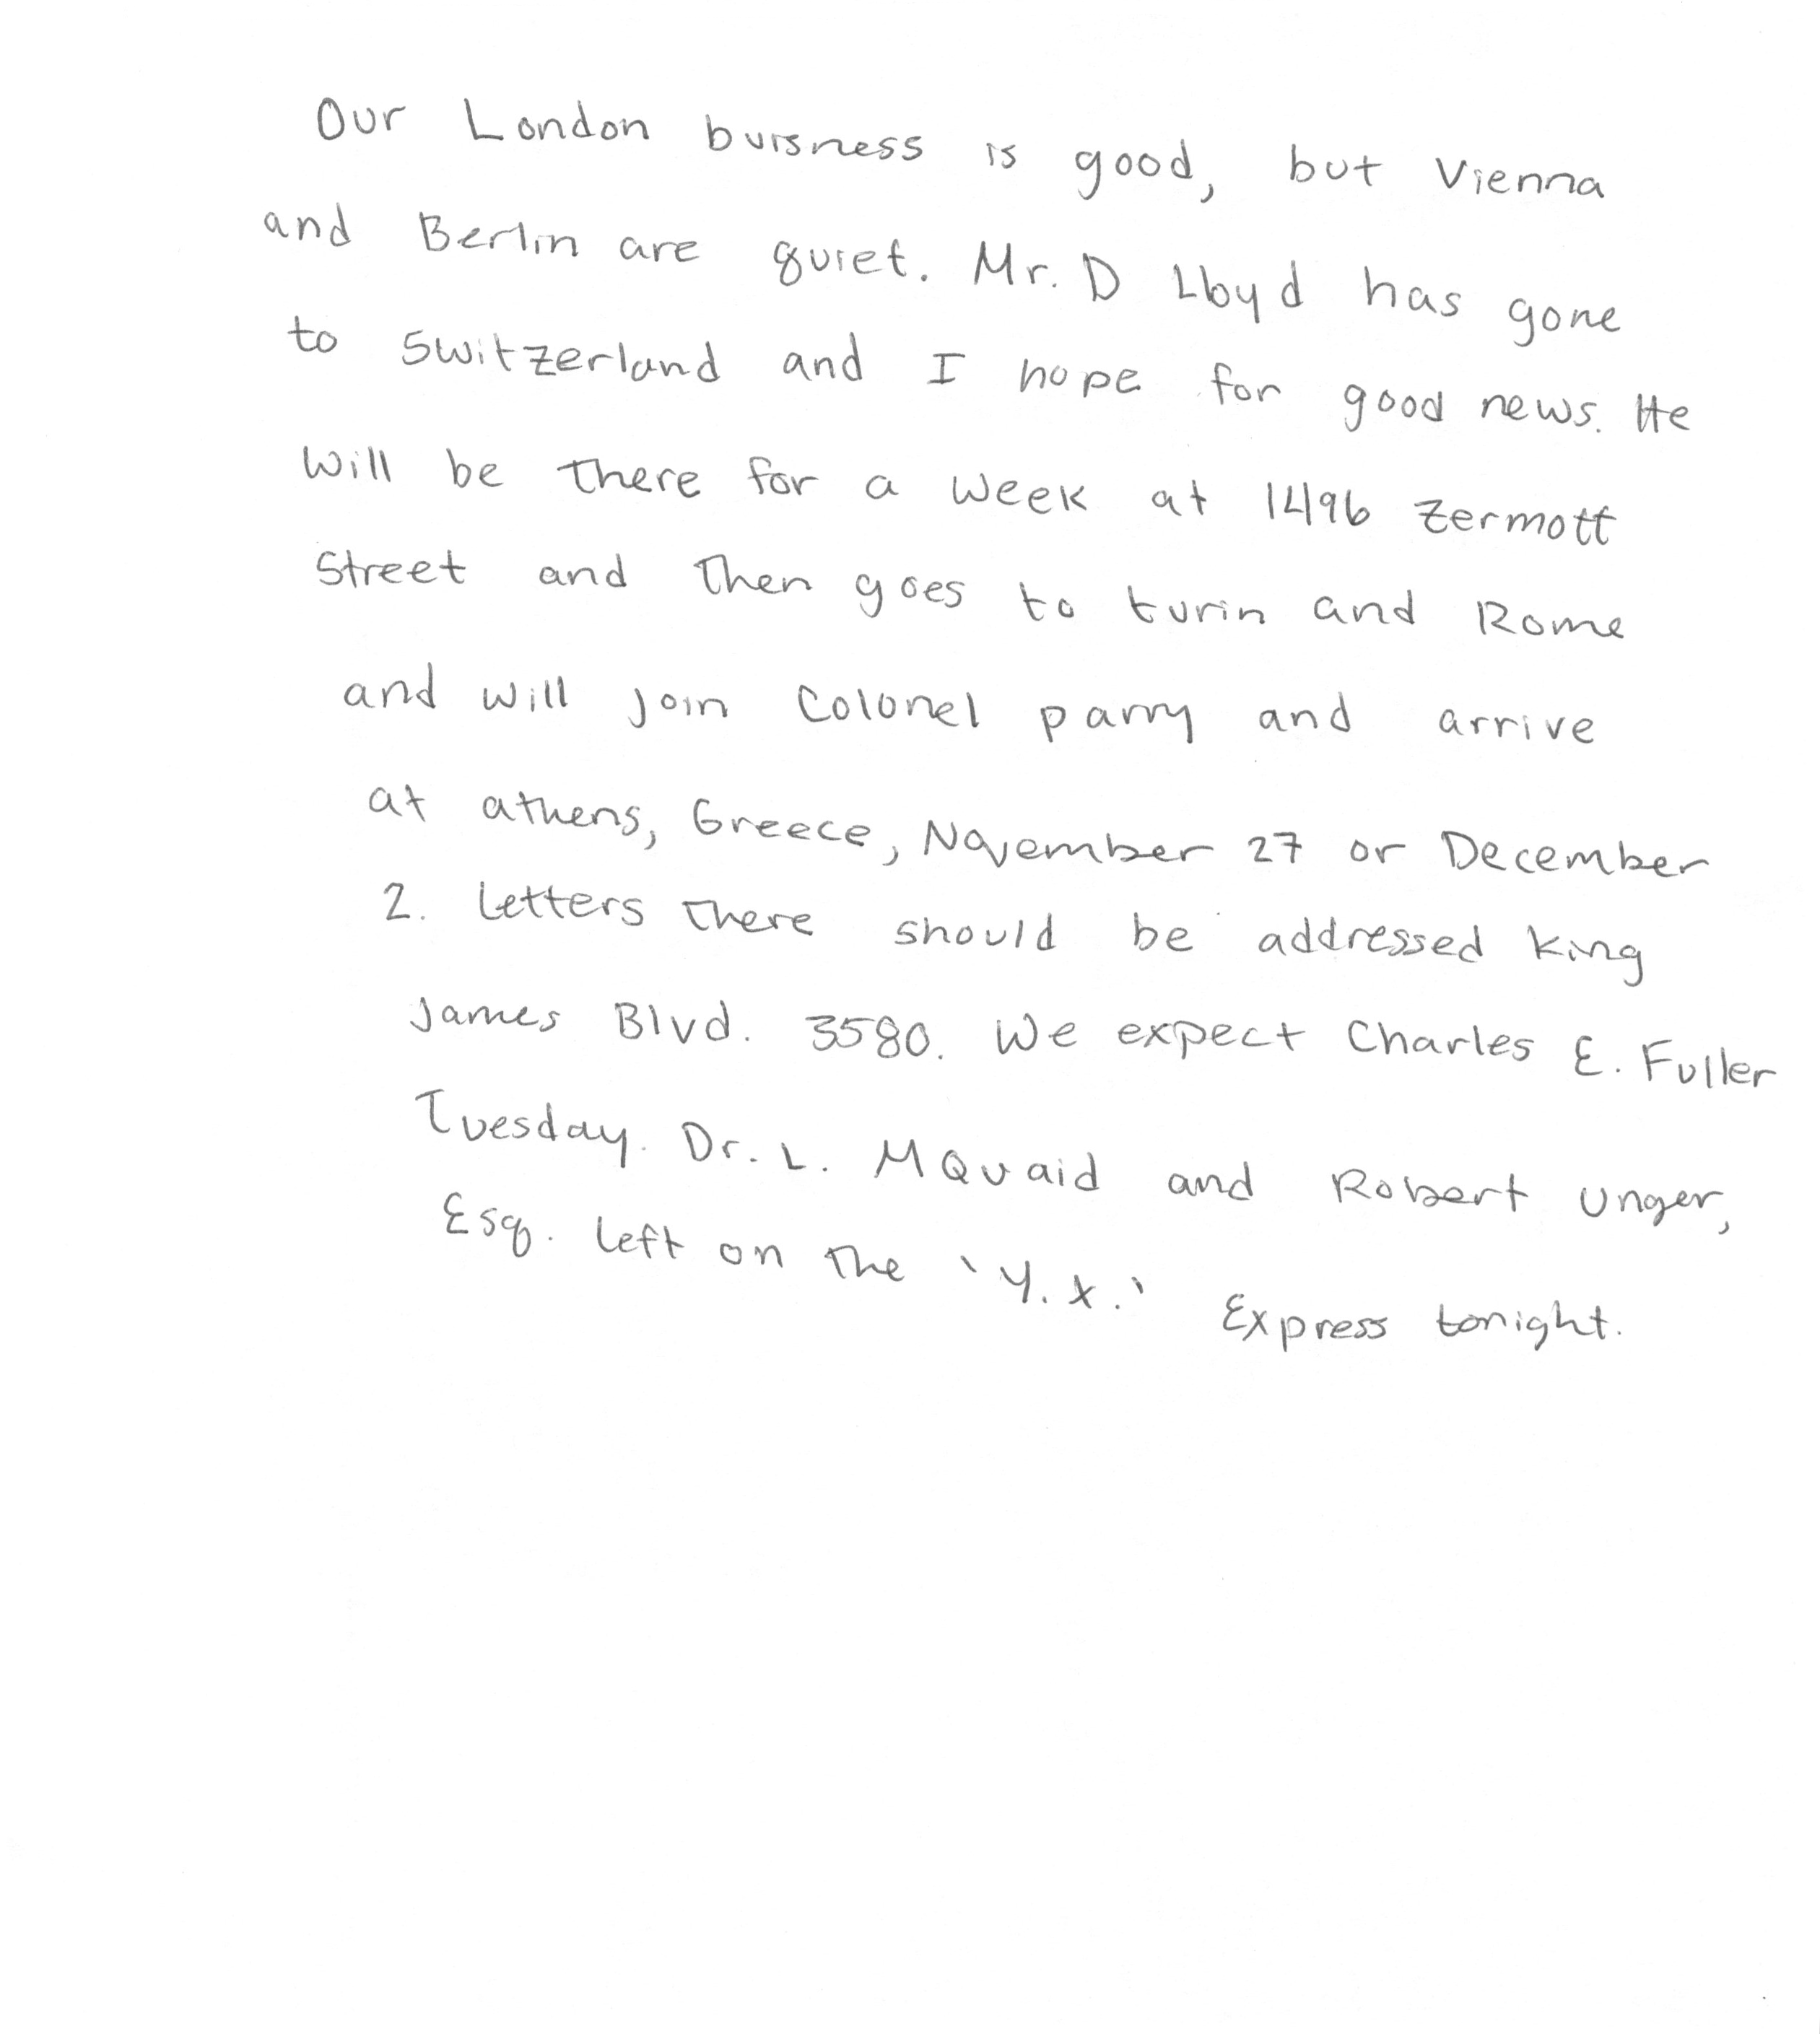 Our London buisness is good, but Vienna
and Berlin are quiet. Mr. D Lloyd has gone
to Switzerland and I hope for good news. He
will be there for a week at 1496 Zermott
Street and then goes to turin and Rome
and will join Colonel parry and arrive
at athens, Greece, November 27 or December
2. Letters there should be addressed king
James Blvd. 3580. We expect Charles E. Fuller
Tuesday. Dr. L. MQuaid and Robert Unger,
Esq. left on the 'Y.X.' Express tonight.